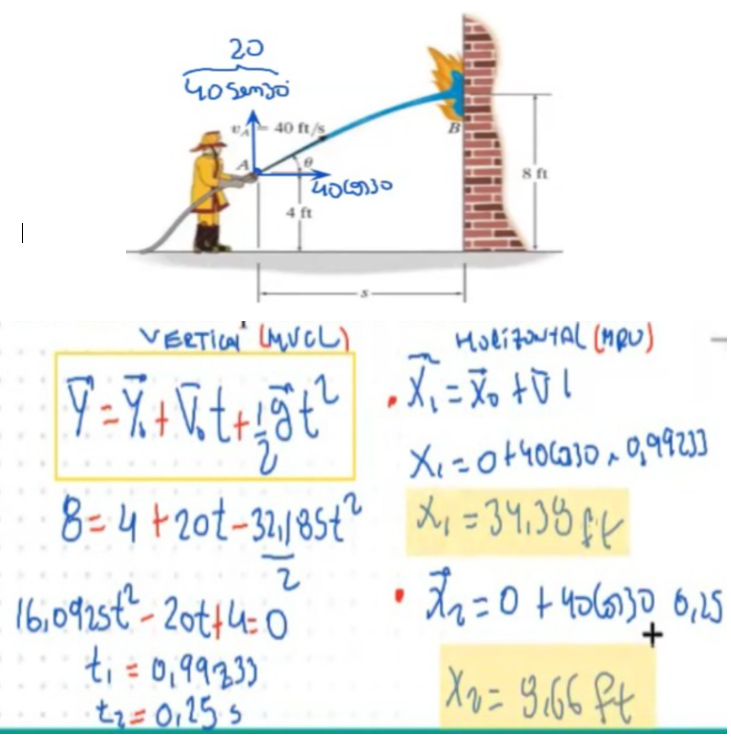 20
40sen30
vA = 40 ft/s
A
θ
40cos30
B
8 ft
4 ft
s
VERTICAL (MVCL)
Y = Y₀ + V₀t + 1/2 gt²
8 = 4 + 20t - 32,185t²/2
16,0925t² - 20t + 4 = 0
t₁ = 0,99233
t₂ = 0,25 s
HORIZONTAL (MRU)
• X₁ = X₀ + V t
X₁ = 0 + 40cos30 × 0,99233
X₁ = 34,38 ft
• X₂ = 0 + 40cos30 0,25
X₂ = 8,66 ft